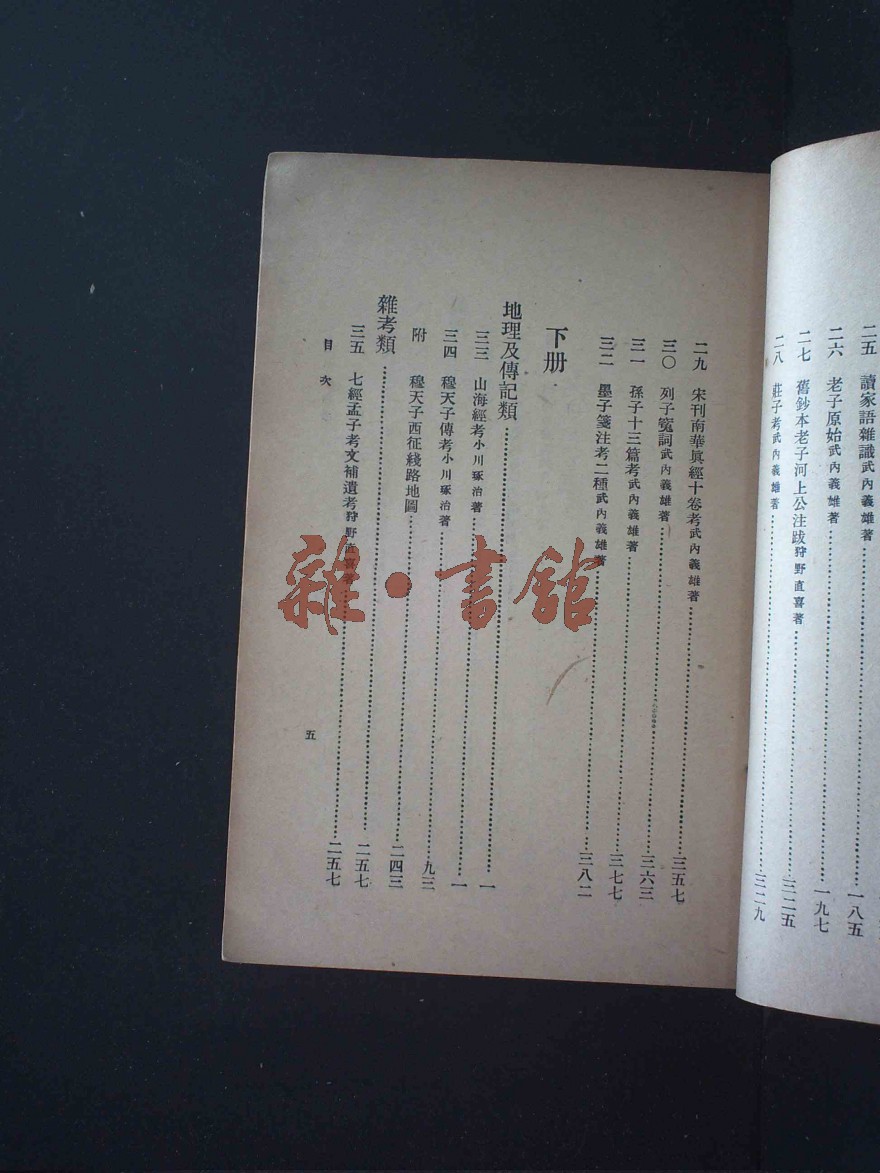 二五　讀家語雜識武內義雄著…一八五
二六　老子原始武內義雄著…一九七
二七　舊鈔本老子河上公注跋狩野直喜著…三二五
二八　莊子考武內義雄著…三二九
二九　宋刊南華眞經十卷考武內義雄著…三五七
三〇　列子寃詞武內義雄著…三六三
三一　孫子十三篇考武內義雄著…三七七
三二　墨子箋注考二種武內義雄著…三八二
下册
地理及傳記類…一
三三　山海經考小川琢治著…一
三四　穆天子傳考小川琢治著…九三
附　穆天子西征綫路地圖…二四三
雜考類…二五七
三五　七經孟子考文補遺考狩野直喜著…二五七
目次
五
雜·書館